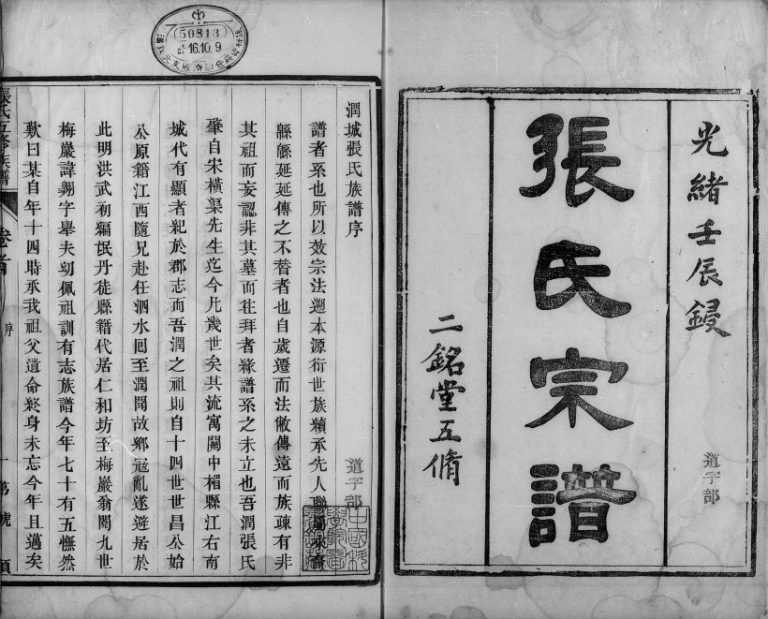 光緒壬辰鋟
道字部
張氏宗譜
二銘堂五脩
50813
16.10.9
潤城張氏族譜序
道字部
譜者系也所以效宗法遡本源衍世族積承先人
緜緜延延傳之不替者也自歲遷而法敝傳遠而族疎有非
其祖而妄認非其墓而往拜者緣譜系之未立也吾潤張氏
肇自宋橫渠先生迄今凡幾世矣其流寓閩中楫縣江右南
城代有顯者紀於郡志而吾潤之祖則自十四世世昌公始
公原籍江西隨兄赴任泗水回至潤聞故鄉寇亂遂遊居於
此明洪武初編氓丹徒縣籍代居仁和坊至梅巖翁閱九世
梅巖諱翱字舉夫幼佩祖訓有志族譜今年七十有五憮然
歎曰某自年十四時承我祖父遺命終身未忘今年且邁矣
張氏五修族譜
卷首
序
一
第
號
項